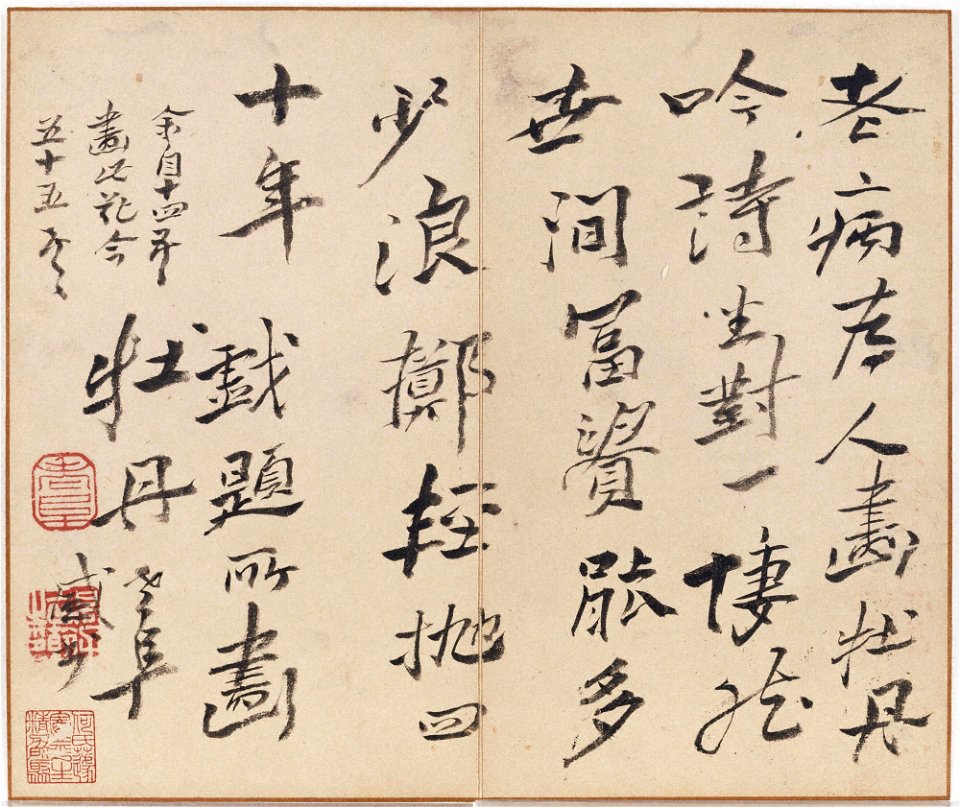 老病人畫牡丹
吟詩坐對一悽然
世間富貴能多
少浪擲輕拋四
十年 戲題所畫
牡丹 老阜
余自十四
畫此花今
五十五